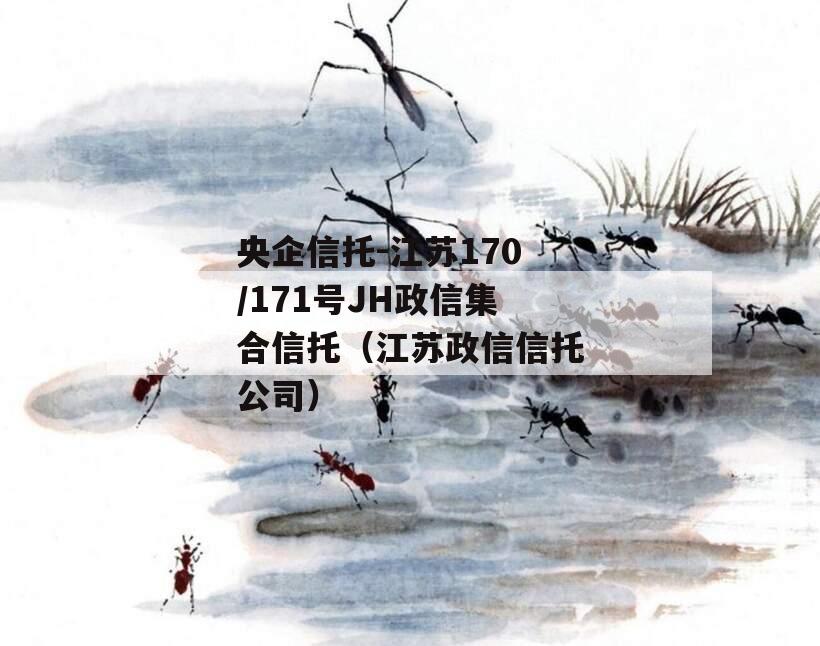 央企信托-江苏170
/171号JH政信集
合信托（江苏政信信托
公司）